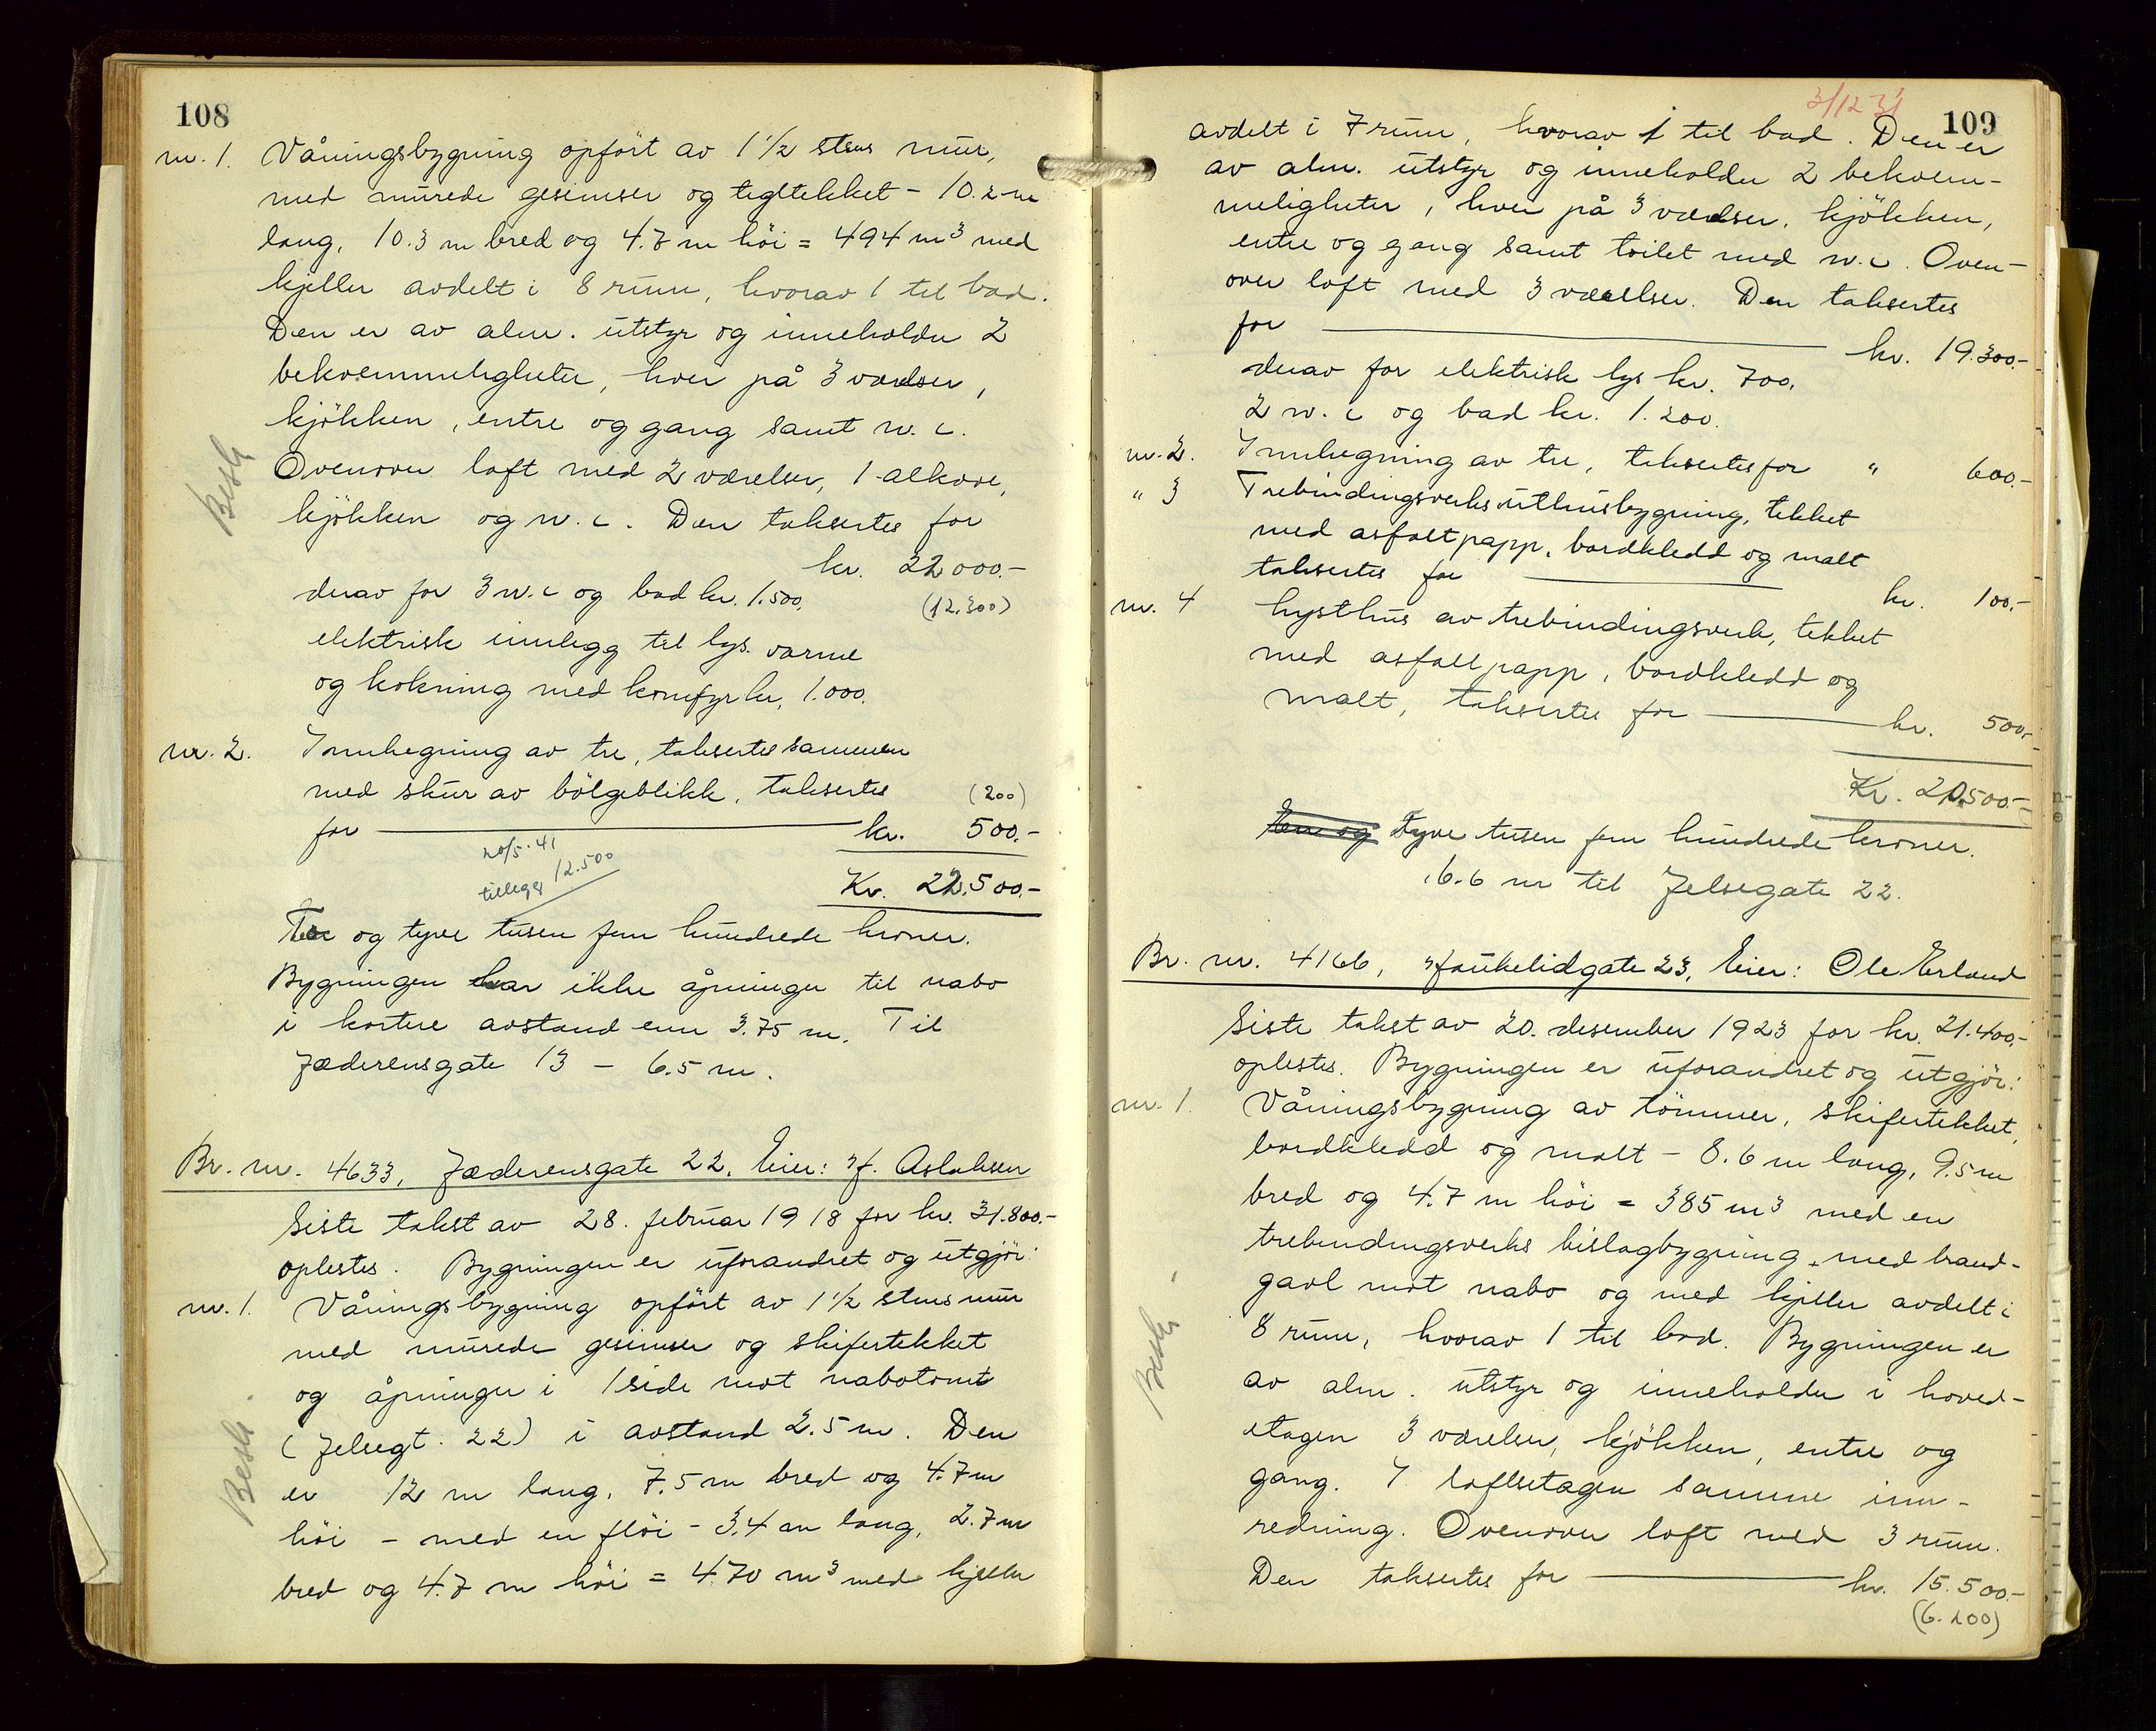 108
nr. 1. Våningsbygning opført av 1 1/2 stens mur,
med murede gesimser og tegltekket - 10.2 m
lang, 10.3 m bred og 4.7 m höi = 494 m³ med
kjeller avdelt i 8 rum, hvorav 1 til bad.
Den er av alm. utstyr og inneholder 2
bekvemmeligheter, hver på 3 værelser,
kjökken, entre og gang samt w.c.
Ovenover loft med 2 værelser, 1 alkove,
kjökken og w.c. Den taksertes for
kr. 22000.-
derav for 3 w.c og bad kr. 1.500,
(12.300)
elektrisk innlegg til lys, varme
og kokning med komfyr kr. 1.000.
Besk
nr. 2. Innhegning av tre, taksertes sammen
med skur av bölgeblikk, taksertes
(200)
for kr. 500.-
20/5-41
tillegg 12.500
Kr. 22,500.-
To og tyve tusen fem hundrede kroner.
Bygningen har ikke åpninger til nabo
i kortere avstand enn 3.75 m. Til
Jæderensgate 13 - 6.5 m.
Br. nr. 4633, Jæderensgate 22, Eier: H. Aslaksen
Siste takst av 28. februar 1918 for kr. 31.800.-
oplestes. Bygningen er uforandret og utgjör:
nr. 1. Våningsbygning opfört av 1 1/2 stens mur
med murede gesimser og skifertekket
og åpninger i 1 side mot nabotomt
(Jelsegt. 22) i avstand 2.5 m. Den
er 12 m lang, 7.5 m bred og 4.7 m
höi - med en flöi - 3.4 m lang, 2.7 m
bred og 4.7 m höi = 470 m³ med kjeller
Besk.
3/12 31
109
avdelt i 7 rum, hvorav 1 til bad. Den er
av alm. utstyr og inneholder 2 bekvem-
meligheter, hver på 3 værelser, kjökken,
entre og gang samt toilet med w.c. Oven-
over loft med 3 værelser. Den taksertes
for kr. 19.300.-
derav for elektrisk lys kr. 700,
2 w.c og bad kr. 1.200.
nr. 2. Innhegning av tre, taksertes for " 600.-
" 3 Trebindingsverks uthusbygning, tekket
med asfaltpapp, bordkledd og malt
taksertes for kr. 100.-
nr. 4 Lysthus av trebindingsverk, tekket
med asfaltpapp, bordkledd og
malt, taksertes for kr. 500.-
Kr. 20,500.-
En og Tyve tusen fem hundrede kroner.
6.6 m til Jelsegate 22.
Br. nr. 4166, Haukelidgate 23, Eier: Ole Erland
Siste takst av 20. desember 1923 for kr. 21.400.-
oplestes. Bygningen er uforandret og utgjör:
nr. 1. Våningsbygning av tömmer, skifertekket,
bordkledd og malt - 8.6 m lang, 9.5 m
bred og 4.7 m höi = 385 m³ med en
trebindingsverks bislagbygning, med brand-
gavl mot nabo og med kjeller avdelt i
8 rum, hvorav 1 til bad. Bygningen er
av alm. utstyr og inneholder i hoved-
etagen 3 værelser, kjökken, entre og
gang. I loftsetagen samme inn-
redning. Ovenover loft med 3 rum.
Den taksertes for kr. 15.500.-
(6.200)
Besk.